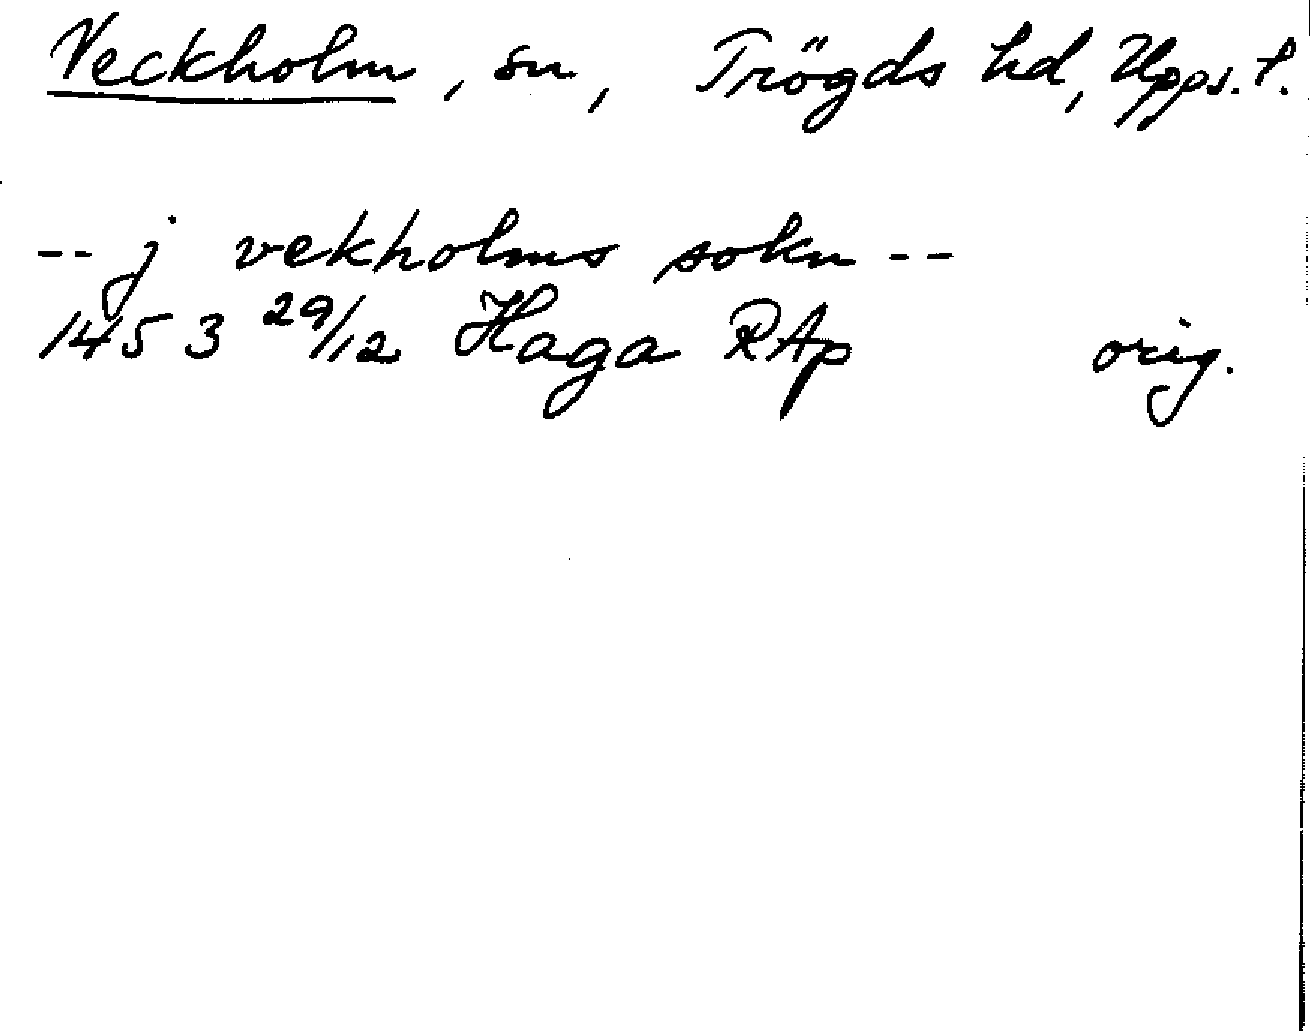 Veckholm, sn, Trögds hd, Upps. l.
-- j vekholms sokn --
1453 29/12 Haga RAp orig.